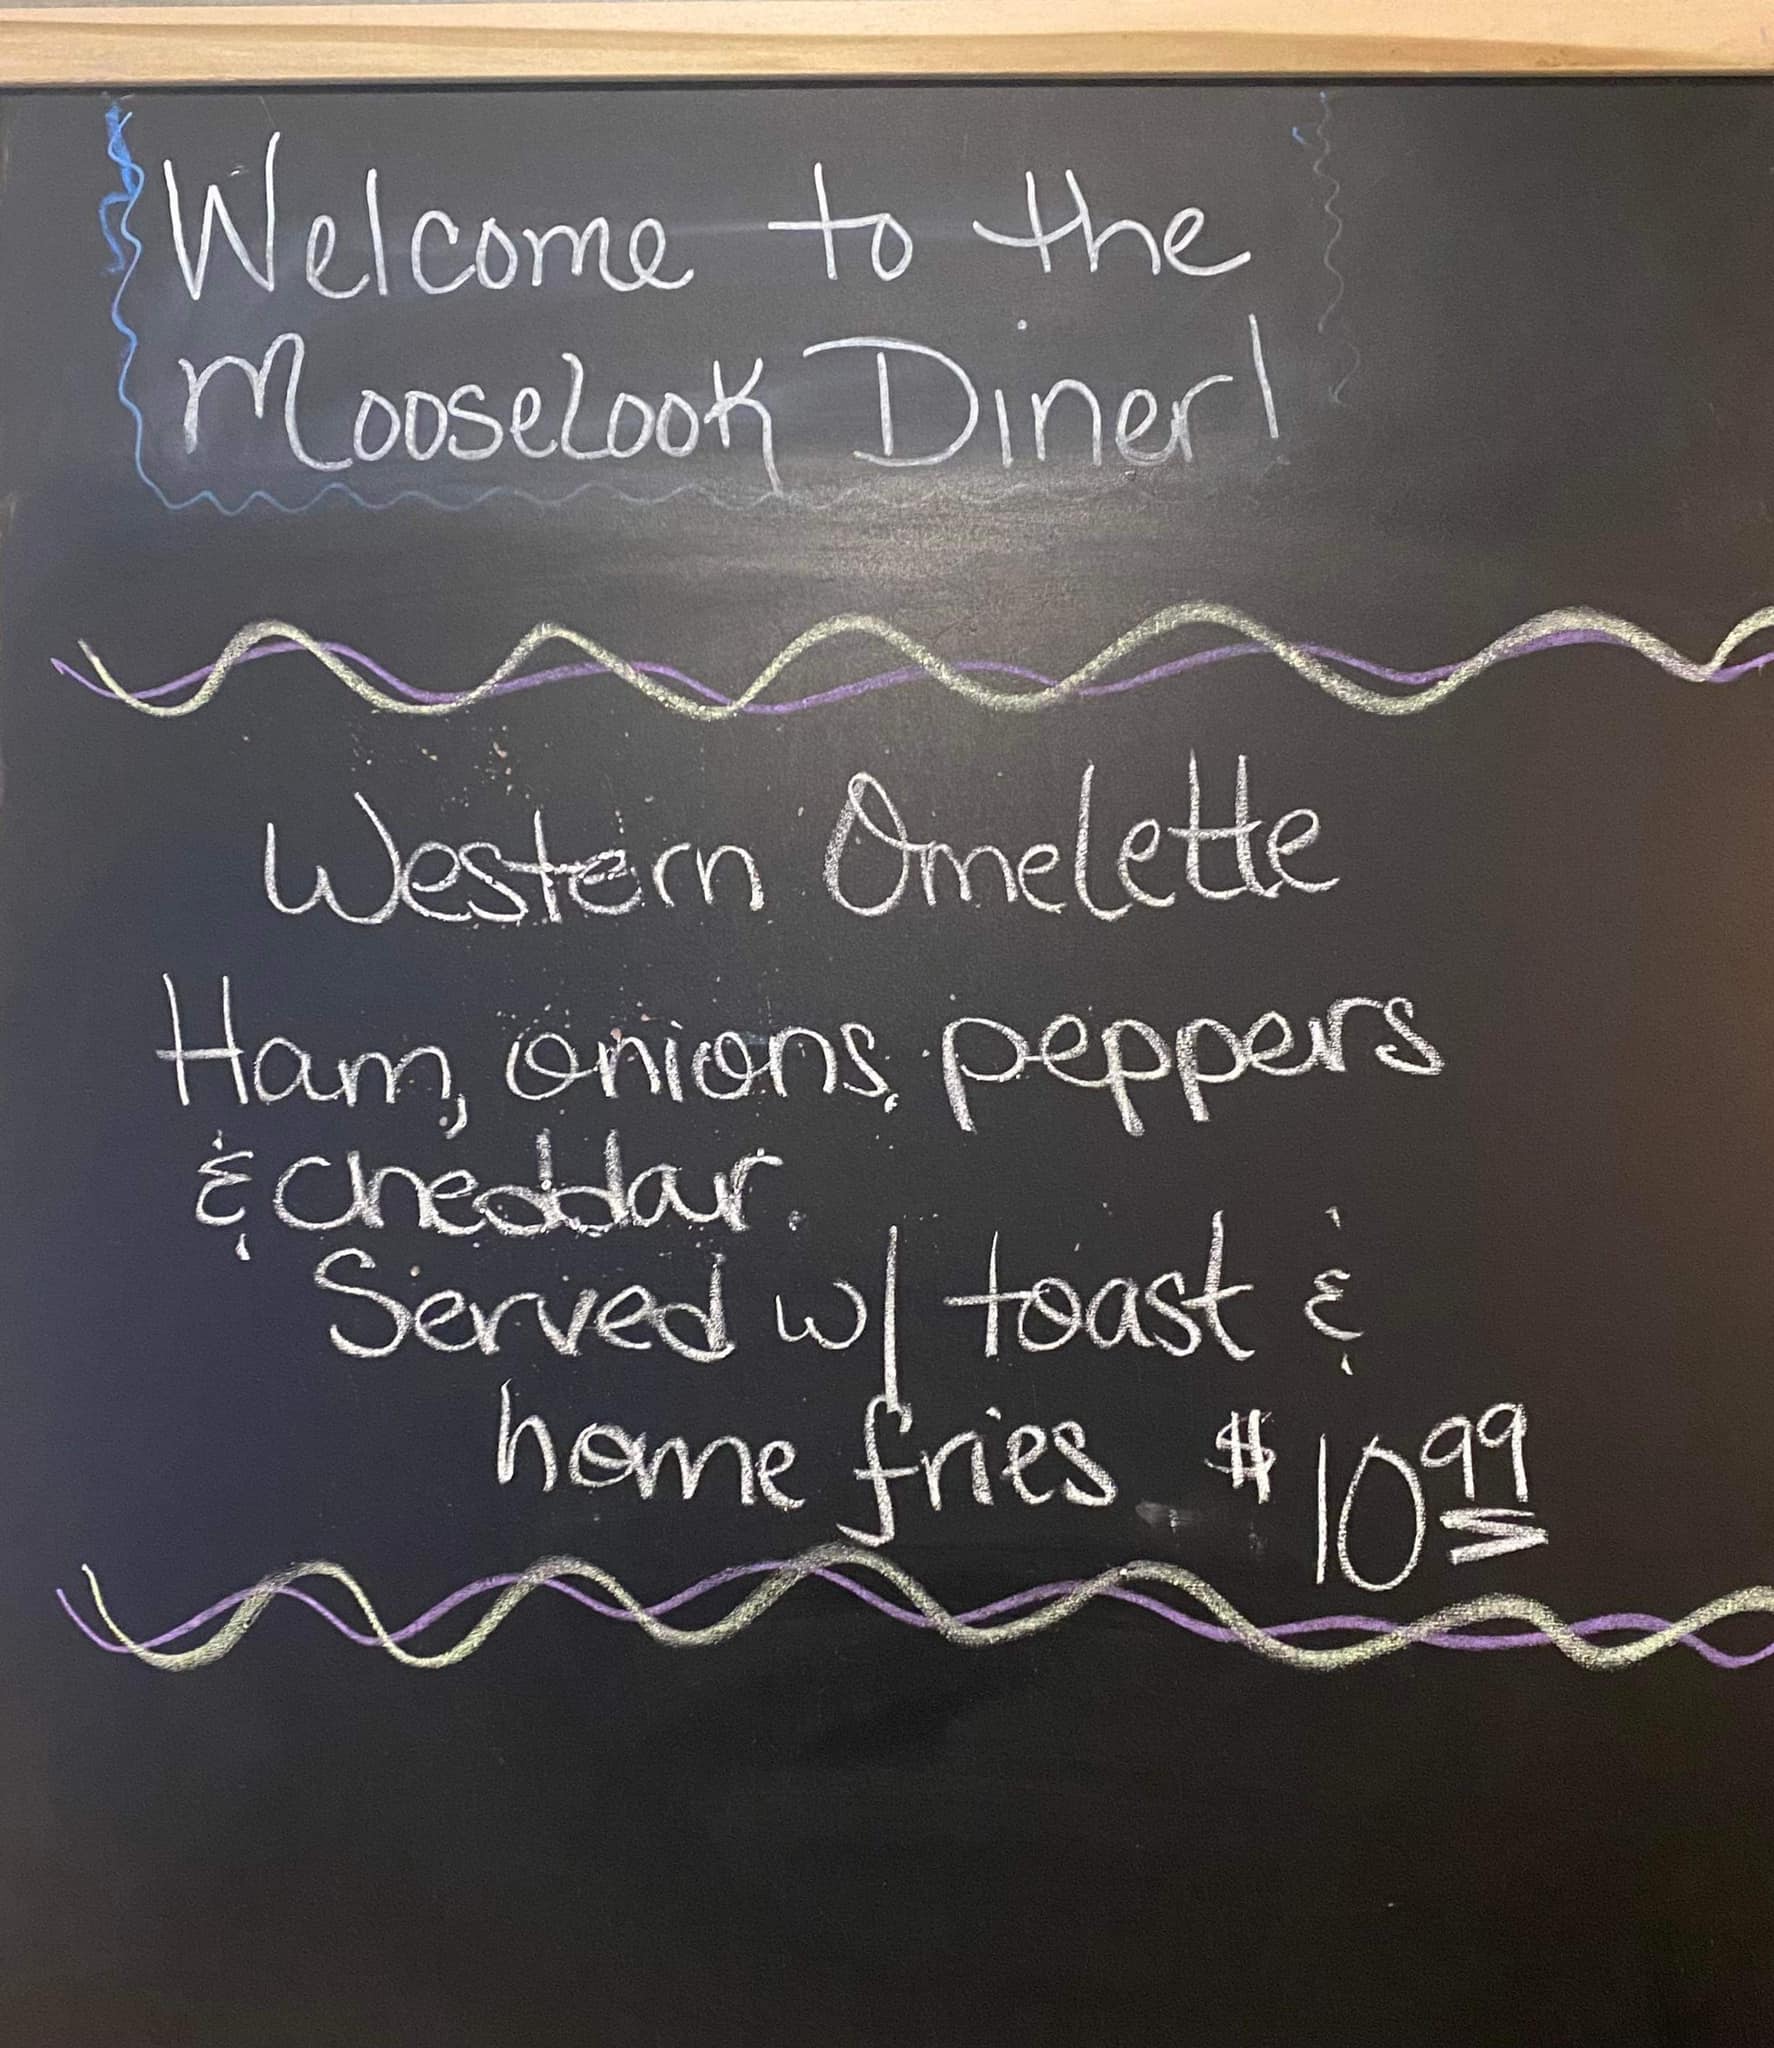 Welcome to the
Mooselook Diner!
Western Omelette
Ham, onions, peppers
& cheddar.
Served w/ toast &
home fries $10.99